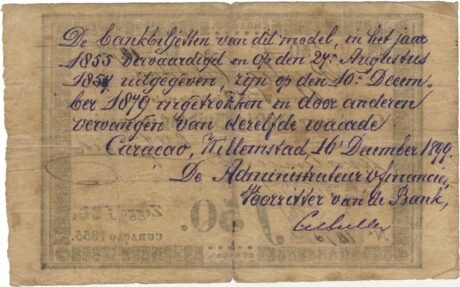 De bankbiljetten van dit model, in het jaar
1855 vervaardigd en op den 27n Augustus
185 uitgegeven, zijn op den 10n Decem-
ber 1879 ingetrokken en door anderen
vervangen van dezelfde waarde
Curacao, Willemstad, 16 December 1899.
De Administrateur v financien,
Voorzitter van de Bank,
N:
ƒ50.
CURAÇAO 1855.